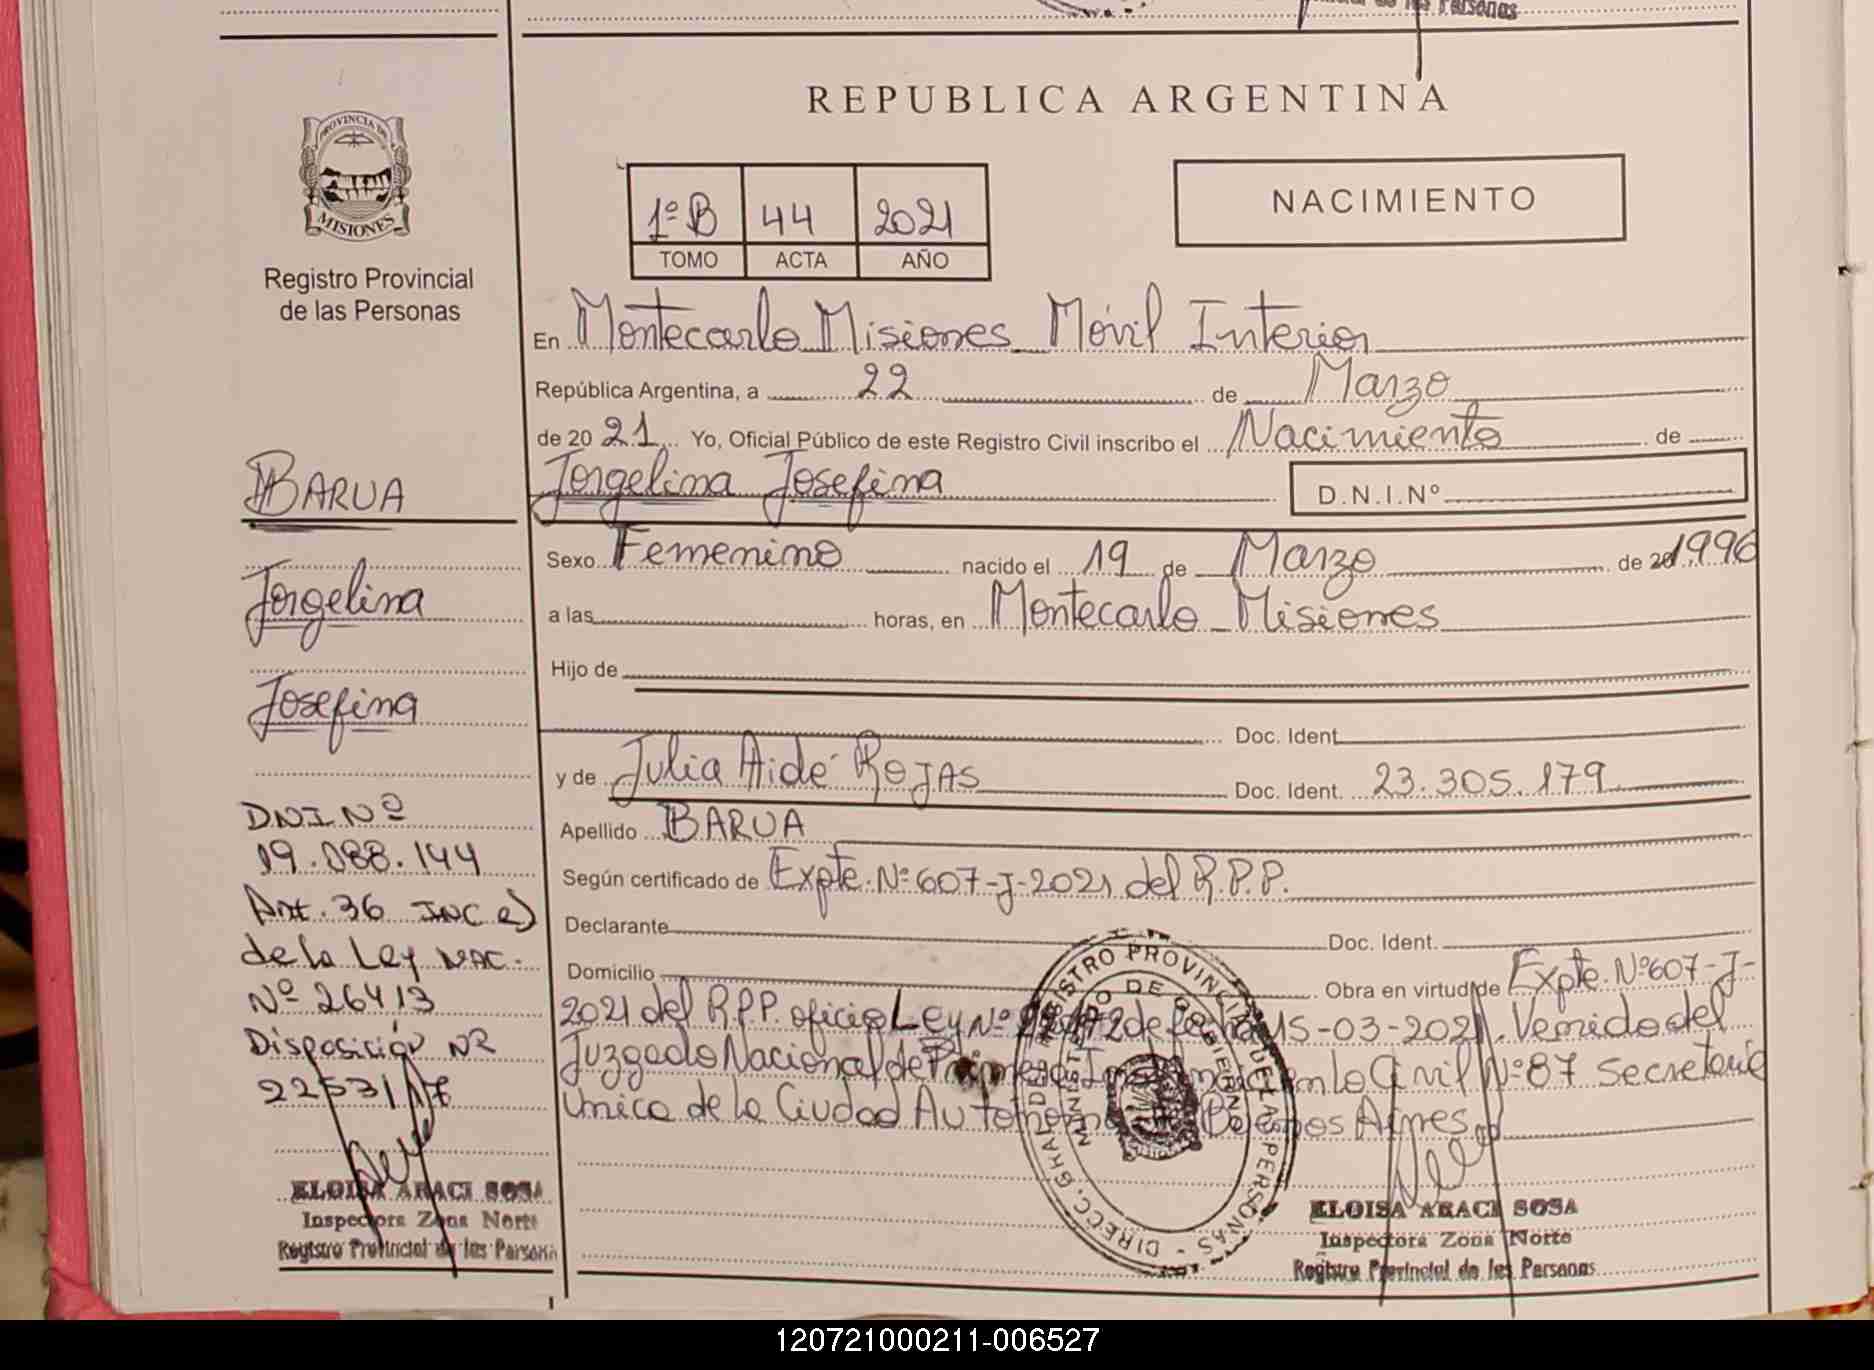 de las Personas
REPUBLICA ARGENTINA
PROVINCIA DE
MISIONES
Registro Provincial
de las Personas
1º B 44 2021
TOMO ACTA AÑO
NACIMIENTO
En Montecarlo Misiones Móvil Interior
República Argentina, a 22 de Marzo
de 2021 Yo, Oficial Público de este Registro Civil inscribo el Nacimiento de
Jorgelina Josefina D.N.I.Nº
Sexo Femenino nacido el 19 de Marzo de 20 1996
a las horas, en Montecarlo Misiones
Hijo de
Doc. Ident.
y de Julia Aidé ROJAS Doc. Ident. 23.305.179
Apellido BARUA
Según certificado de Expte. Nº 607-J-2021 del R.P.P.
Declarante Doc. Ident.
Domicilio Obra en virtud de Expte. Nº 607-J-
2021 del R.P.P. oficio Ley Nº 22172 de fecha 15-03-2021. Venido del
Juzgado Nacional de Primera Instancia en lo Civil Nº 87 Secretaria
Unica de la Ciudad Autonoma de Buenos Aires
BARUA
Jorgelina
Josefina
DNI Nº
19.088.144
Art. 36 INC e)
de la Ley NAC.
Nº 26413
Disposición Nº
2253/17
ELOISA ARACI SOSA
Inspectora Zona Norte
Registro Provincial de las Personas
REGISTRO PROVINCIAL DE LAS PERSONAS
MINISTERIO DE GOBIERNO
ELOISA ARACI SOSA
Inspectora Zona Norte
Registro Provincial de las Personas
120721000211-006527